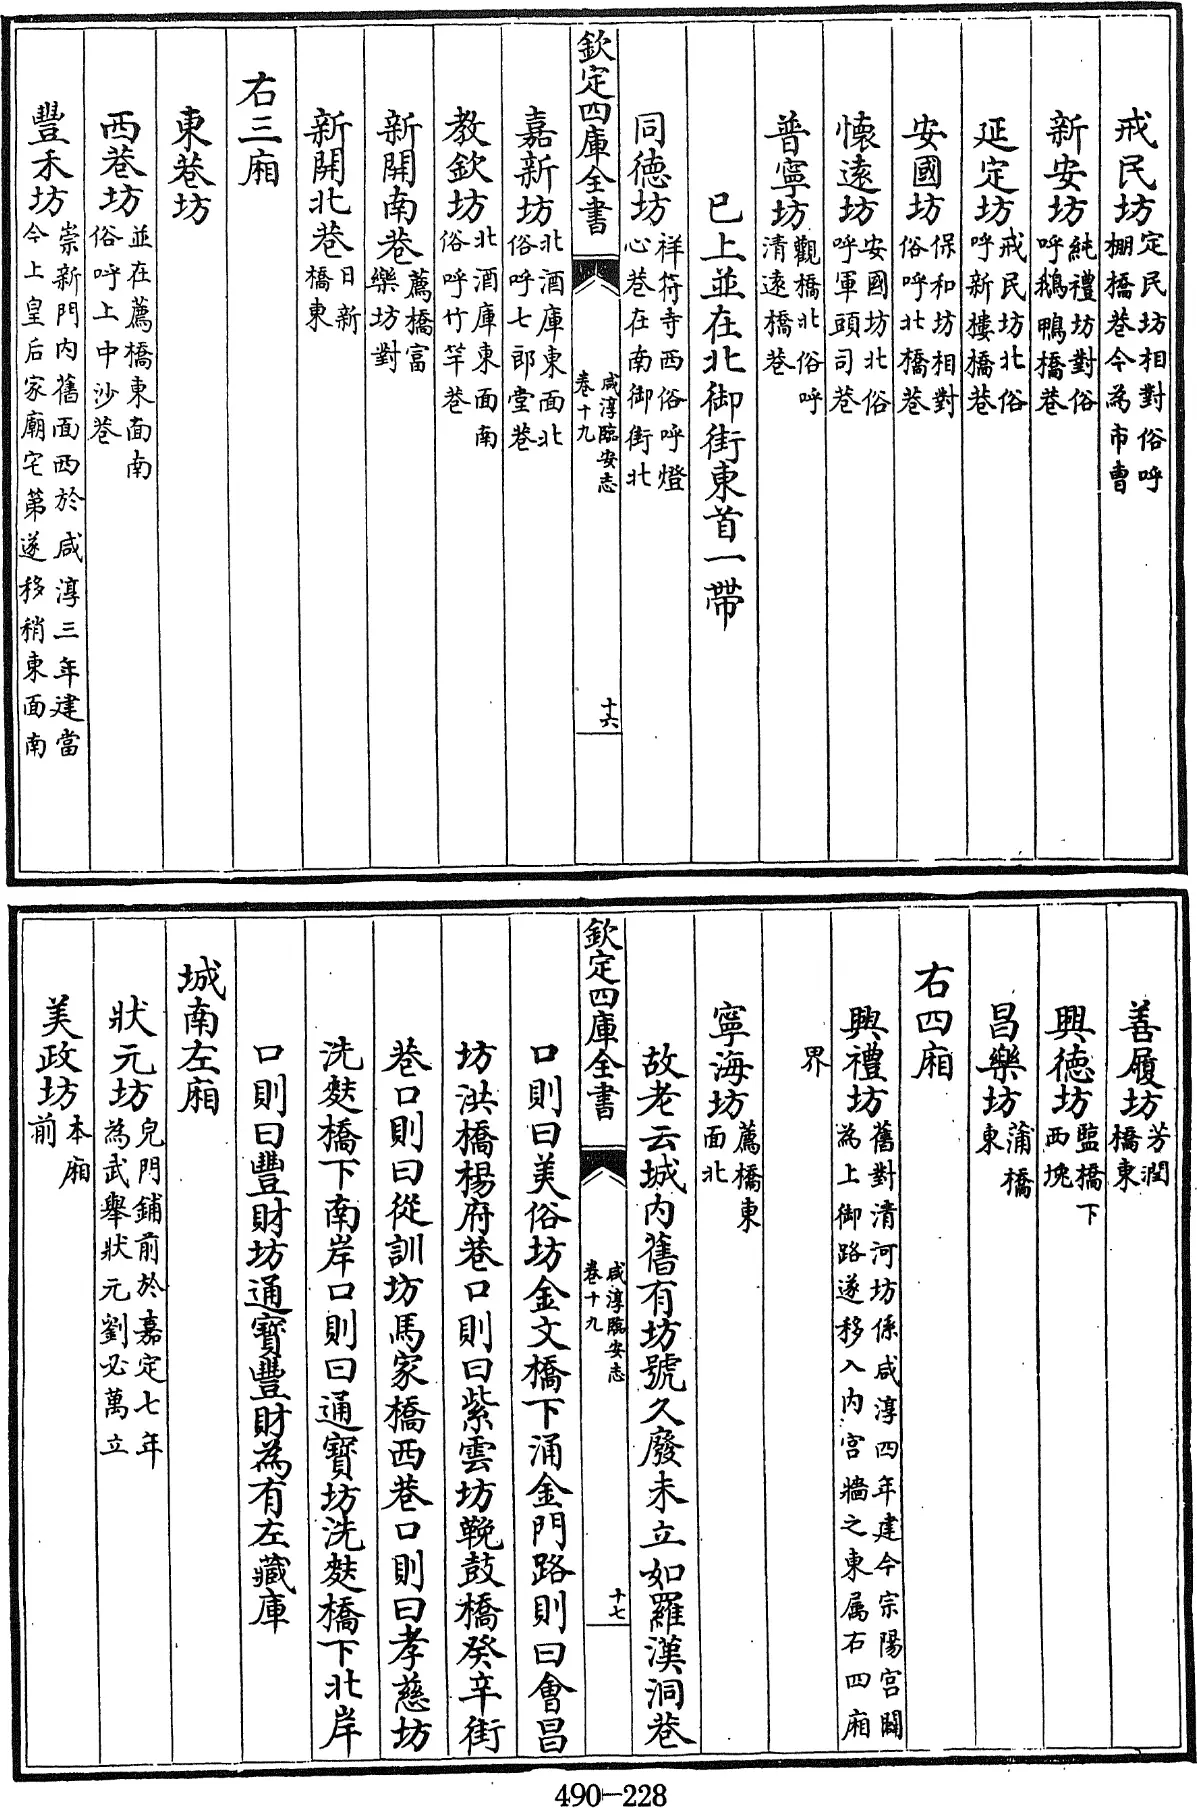 戒民坊定民坊相對俗呼棚橋巷今為市曹
新安坊純禮坊對俗呼鵝鴨橋巷
延定坊戒民坊北俗呼新樓橋巷
安國坊保和坊相對俗呼北橋巷
懷遠坊安國坊北俗呼軍頭司巷
普寧坊觀橋北俗呼清遠橋巷
已上並在北御街東首一帶
同德坊祥符寺西俗呼燈心巷在南御街北
欽定四庫全書
咸淳臨安志
卷十九
十六
嘉新坊北酒庫東面北俗呼七郎堂巷
教欽坊北酒庫東面南俗呼竹竿巷
新開南巷薦橋富樂坊對
新開北巷日新橋東
右三廂
東巷坊
西巷坊並在薦橋東面南俗呼上中沙巷
豐禾坊崇新門內舊面西於咸淳三年建當今上皇后家廟宅第遂移稍東面南
善履坊芳潤橋東
興德坊監橋下西堍
昌樂坊蒲橋東
右四廂
興禮坊舊對清河坊係咸淳四年建今宗陽宮闢為上御路遂移入內宮牆之東属右四廂
界
寧海坊薦橋東面北
故老云城內舊有坊號久廢未立如羅漢洞巷
欽定四庫全書
咸淳臨安志
卷十九
十七
口則曰美俗坊金文橋下涌金門路則曰會昌
坊洪橋楊府巷口則曰紫雲坊鞔鼓橋癸辛街
巷口則曰從訓坊馬家橋西巷口則曰孝慈坊
洗麩橋下南岸口則曰通寶坊洗麩橋下北岸
口則曰豐財坊通寶豐財為有左藏庫
城南左廂
狀元坊皃門鋪前於嘉定七年為武舉狀元劉必萬立
美政坊本廂前
490-228